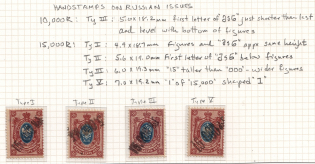 HANDSTAMPS ON RUSSIAN ISSUES
10,000R: Ty III: 5.0 x 15.2mm First letter of just shorter than last
and level with bottom of figures
15,000R: Ty I: 4.9 x 18.7mm figures and appx same height
Ty II: 5.6 x 19.0mm First letter of below figures
Ty III: 6.0 x 19.2mm "15" taller than "000" - wider figures
Ty V: 7.0 x 19.2mm "1" of "15,000" shaped "1"
Type I Type II Type III Type V